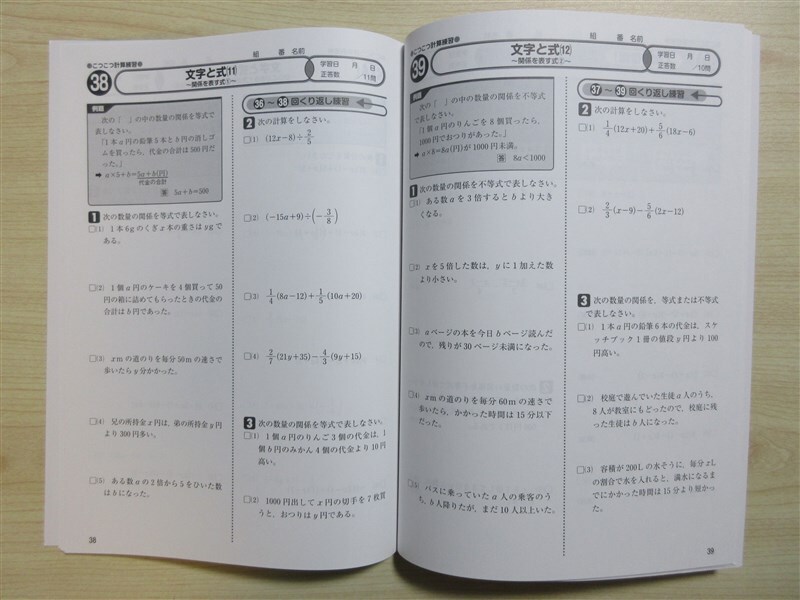 ●こつこつ計算練習●
組 番 名前
38
文字と式(11)
～関係を表す式①～
学習日 月 日
正答数 /11問
例題
次の「 」の中の数量の関係を等式で
表しなさい。
「1本a円の鉛筆5本とb円の消しゴ
ムを買ったら、代金の合計は500円だ
った。」
➡ a×5+b=5a+b(円)
代金の合計
答 5a+b=500
1 次の数量の関係を等式で表しなさい。
□(1) 1本6gのくぎx本の重さはygで
ある。
□(2) 1個a円のケーキを4個買って50
円の箱に詰めてもらったときの代金の
合計はb円であった。
□(3) xmの道のりを毎分50mの速さで
歩いたらy分かかった。
□(4) 兄の所持金x円は、弟の所持金y円
より300円多い。
□(5) ある数aの2倍から5をひいた数
はbになった。
36～38回くり返し練習
2 次の計算をしなさい。
□(1) (12x−8)÷2/5
□(2) (−15a+9)÷(−3/8)
□(3) 1/4(8a−12)+1/5(10a+20)
□(4) 2/7(21y+35)−4/3(9y+15)
3 次の数量の関係を等式で表しなさい。
□(1) 1個a円のりんご3個の代金は、1
個b円のみかん4個の代金より10円
高い。
□(2) 1000円出してx円の切手を7枚買
うと、おつりはy円である。
38
●こつこつ計算練習●
組 番 名前
39
文字と式(12)
～関係を表す式②～
学習日 月 日
正答数 /10問
例題
次の「 」の中の数量の関係を不等式
で表しなさい。
「1個a円のりんごを8個買ったら、
1000円でおつりがあった。」
➡ a×8=8a(円)が1000円未満。
答 8a<1000
1 次の数量の関係を不等式で表しなさい。
□(1) ある数aを3倍するとbより大き
くなる。
□(2) xを5倍した数は、yに1加えた数
より小さい。
□(3) aページの本を今日bページ読んだ
ので、残りが30ページ未満になった。
□(4) xmの道のりを毎分60mの速さで
歩いたら、かかった時間は15分以下
だった。
□(5) バスに乗っていたa人の乗客のう
ち、b人降りたが、まだ10人以上いた。
37～39回くり返し練習
2 次の計算をしなさい。
□(1) 1/4(12x+20)+5/6(18x−6)
□(2) 2/3(x−9)−5/6(2x−12)
3 次の数量の関係を、等式または不等式
で表しなさい。
□(1) 1本a円の鉛筆6本の代金は、スケ
ッチブック1冊の値段y円より100
円高い。
□(2) 校庭で遊んでいた生徒a人のうち、
8人が教室にもどったので、校庭に残
った生徒はb人になった。
□(3) 容積が200Lの水そうに、毎分xL
の割合で水を入れると、満水になるま
でにかかった時間は15分より短かっ
た。
39